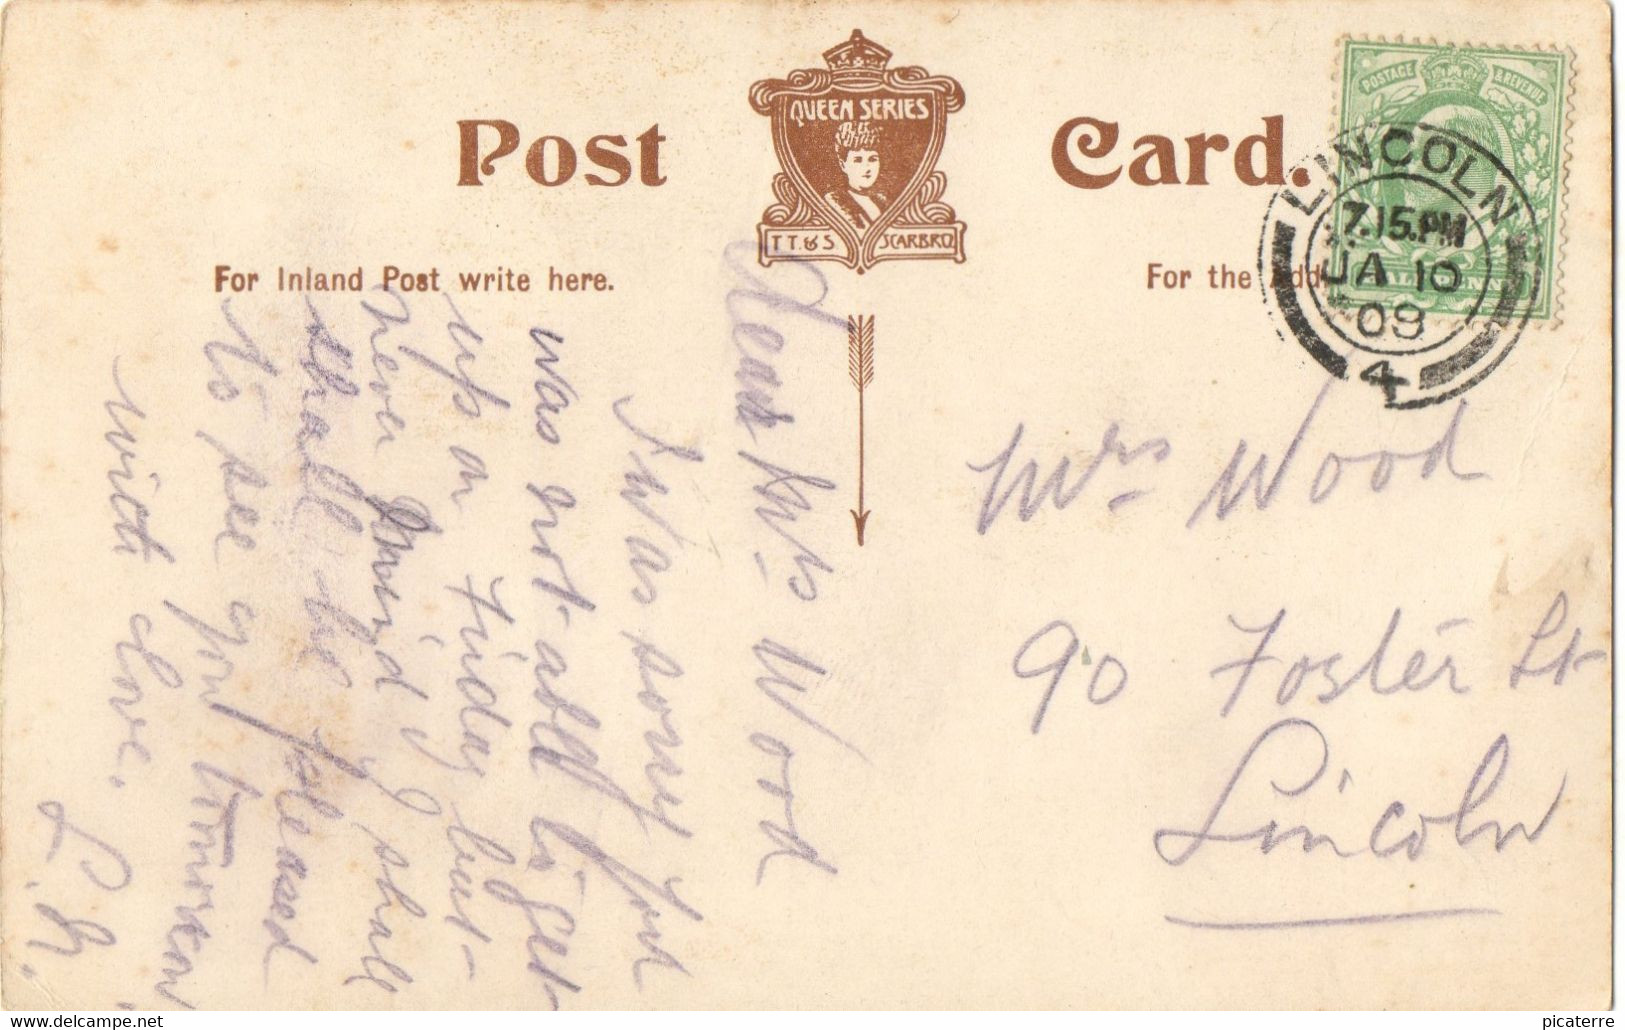 Post Card.
QUEEN SERIES
T T. & S SCARBRO
For Inland Post write here.
For the Add
POSTAGE & REVENUE
LINCOLN
7.15.PM
JA 10
09
4
Dear Mrs Wood
I was sorry
was not able to get
up on Friday but
never mind I shall
shall be pleased
to see you tomorrow
with love.
L. N.
Mrs Wood
90 Foster St
Lincoln
www.delcampe.net
picaterre